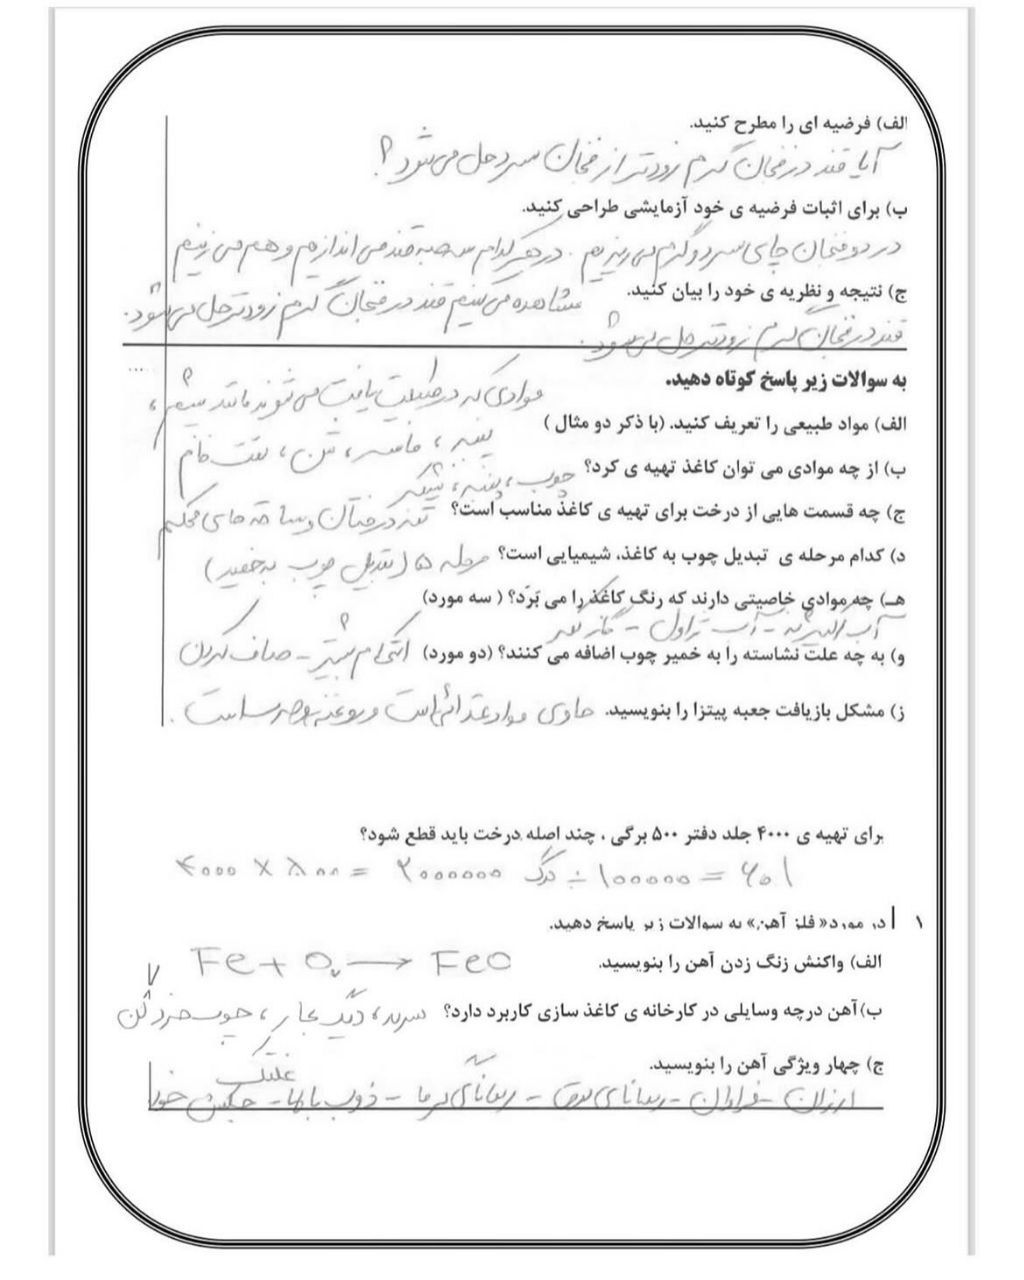 الف) فرضیه ای را مطرح کنید.
آیا قند در فنجان گرم زودتر از فنجان سرد حل می شود؟
ب) برای اثبات فرضیه ی خود آزمایشی طراحی کنید.
در دو فنجان چای سرد و گرم می ریزیم. در هر کدام سه حبه قند می اندازیم و هم می زنیم
ج) نتیجه و نظریه ی خود را بیان کنید. مشاهده می کنیم قند در فنجان گرم زودتر حل می شود.
قند در فنجان گرم زودتر حل می شود.
به سوالات زیر پاسخ کوتاه دهید.
.....
موادی که در طبیعت یافت می شوند مانند
الف) مواد طبیعی را تعریف کنید. (با ذکر دو مثال)
پنبه، ماسه، شن، نفت خام
ب) از چه موادی می توان کاغذ تهیه ی کرد؟ چوب، پنبه، نیشکر
ج) چه قسمت هایی از درخت برای تهیه ی کاغذ مناسب است؟ تنه درختان و ساقه های محکم
د) کدام مرحله ی تبدیل چوب به کاغذ، شیمیایی است؟ مرحله ۵ (تبدیل چوب به خمیر)
هـ) چه موادی خاصیتی دارند که رنگ کاغذ را می بَرَد؟ ( سه مورد)
آب اکسیژنه - آب ژاول - گاز کلر
و) به چه علت نشاسته را به خمیر چوب اضافه می کنند؟ (دو مورد) استحکام بیشتر - صاف کردن
ز) مشکل بازیافت جعبه پیتزا را بنویسید. حاوی مواد غذائی است و روغنی
برای تهیه ی ۴۰۰۰ جلد دفتر ۵۰۰ برگی ، چند اصله درخت باید قطع شود؟
۴۰۰۰ × ۵۰۰ = ۲۰۰۰۰۰۰ برگ ÷ ۱۰۰۰۰۰ =
۱ در مورد« فلز آهن» به سوالات زیر پاسخ دهید.
الف) واکنش زنگ زدن آهن را بنویسید. Fe + O₂ → FeO
ب)آهن درچه وسایلی در کارخانه ی کاغذ سازی کاربرد دارد؟ سرند، دیگ بخار، چوب خرد کن
غلتک
ج) چهار ویژگی آهن را بنویسید.
ارزان - فراوان - رسانای برق - رسانای گرما - ذوب بالا - چکش خوار